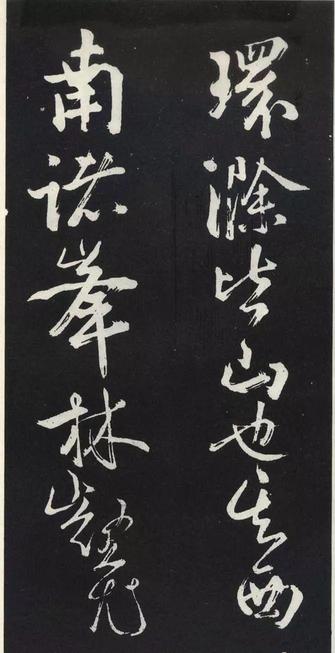 環滁皆山也其西
南諸峯林壑尤